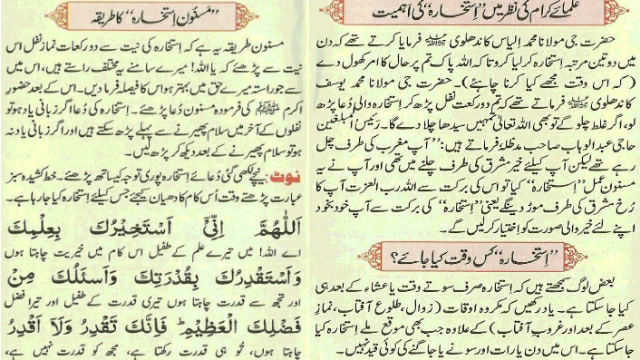 علمائے کرام کی نظر میں "اِستخارہ" کی اہمیت
حضرت جی مولانا محمد الیاس کاندھلوی رحمۃ اللہ علیہ فرمایا کرتے تھے کہ دن
میں دو تین مرتبہ استخارہ کر لیا کرو تاکہ اللہ پاک تم پر حال کا امر کھول دے
(کہ اس وقت مجھے کیا کرنا چاہئے)۔ حضرت جی مولانا محمد یوسف
کاندھلوی فرماتے تھے کہ تم دو رکعت نفل پڑھ کر استخارہ والی دعا پڑھ
لو، اگر غلط چلو گے تو بھی اللہ تعالیٰ تمہیں سیدھا چلا دے گا۔ رئیس المبلغین
حاجی عبدالوہاب صاحب مدظلہ فرماتے ہیں: "آپ مغرب کی طرف چل
رہے تھے لیکن آپ کیلئے خیر مشرق کی طرف چلنے میں تھی اور آپ نے یہ
مسنون عمل "اِستخارہ" کیا تو اس کی برکت سے اللہ رب العزت آپ کا
رُخ مشرق کی طرف موڑ دینگے یعنی "اِستخارہ" کی برکت سے آپ خود بخود
اپنے لئے خیر والی صورت کو اختیار کر لیں گے۔
"اِستخارہ" کس وقت کیا جائے؟
بعض لوگ سمجھتے ہیں کہ استخارہ صرف سوتے وقت یا عشاء کے بعد ہی
کیا جا سکتا ہے۔ یاد رکھیں کہ مکروہ اوقات (زوال، طلوع آفتاب، نماز
عصر کے بعد اور غروب آفتاب) کے علاوہ جب بھی موقع ملے استخارہ کیا
جا سکتا ہے۔ اس میں دن یا رات اور سونے یا جاگنے کی کوئی قید نہیں۔
"مسنون اِستخارہ" کا طریقہ
مسنون طریقہ یہ ہے کہ استخارہ کی نیت سے دو رکعات نماز نفل اس
نیت سے پڑھئے کہ یا اللہ! میرے سامنے یہ مختلف راستے ہیں، اس میں
سے جو راستہ میرے حق میں بہتر ہو اس کا فیصلہ فرما دیں۔ اس کے بعد حضور
اکرم ﷺ کی فرمودہ مسنون دعا پڑھئے۔ استخارہ کی دُعا اگر زبانی یاد ہو تو
نفلوں کے آخر میں سلام پھیرنے سے پہلے پڑھ سکتے ہیں اور اگر زبانی یاد نہ
ہو تو سلام پھیرنے کے بعد دیکھ کر پڑھ لیں۔
نوٹ: نیچے لکھی گئی دعائے استخارہ پوری توجہ کیساتھ پڑھئے۔ خط کشیدہ سبز
عبارت پڑھتے وقت اُس کام کا دھیان کیجئے جس کیلئے استخارہ کیا جا رہا ہے۔
اَللّٰهُمَّ اِنِّيْ اَسْتَخِيْرُكَ بِعِلْمِكَ
اے اللہ! میں تیرے علم کے طفیل اس کام میں خیریت چاہتا ہوں
وَاَسْتَقْدِرُكَ بِقُدْرَتِكَ وَاَسْئَلُكَ مِنْ
اور تجھ سے قدرت چاہتا ہوں تیری قدرت کے طفیل اور تیرا فضل
فَضْلِكَ الْعَظِيْمِ فَاِنَّكَ تَقْدِرُ وَلَا اَقْدِرُ
چاہتا ہوں، تو ہی قدرت رکھتا ہے، مجھ کو قدرت نہیں ہے،